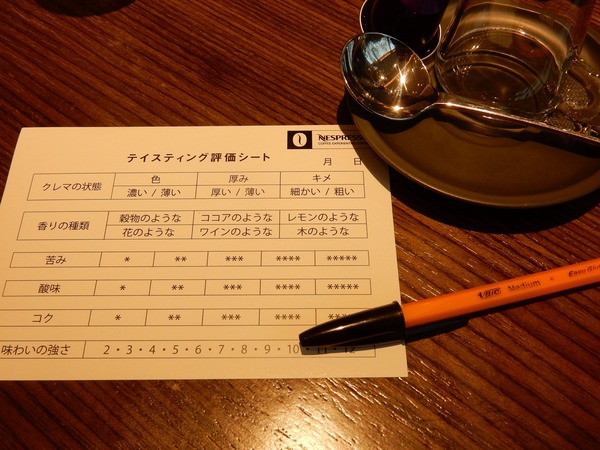 NESPRESSO
COFFEE EXPERIENCE
テイスティング評価シート
月 日
クレマの状態 色 厚み キメ
濃い / 薄い 厚い / 薄い 細かい / 粗い
香りの種類 穀物のような ココアのような レモンのような
花のような ワインのような 木のような
苦み * ** *** **** *****
酸味 * ** *** **** *****
コク * ** *** ****
味わいの強さ 2・3・4・5・6・7・8・9・10・11・12
BIC Medium Easy Glide